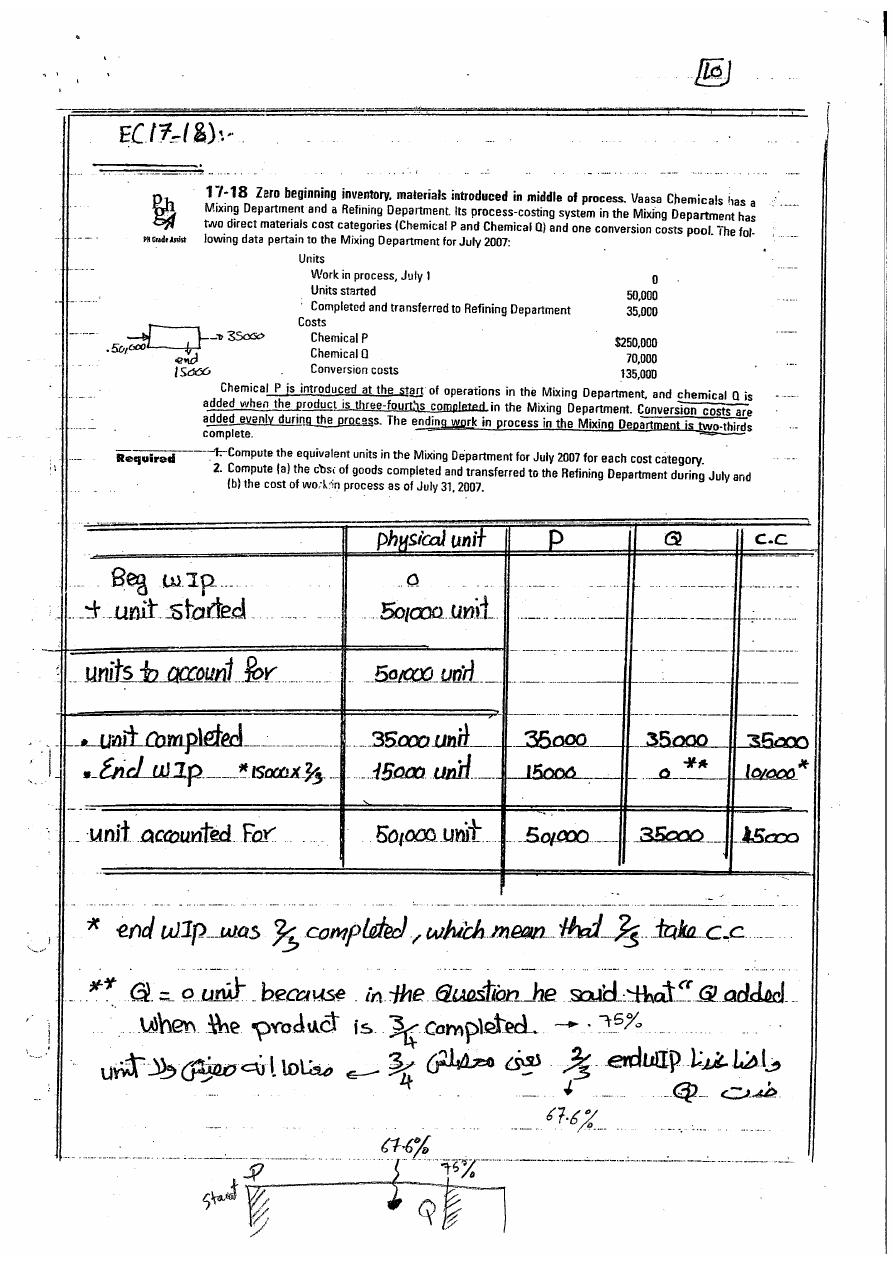 10
EC17-18):-
17-18 Zero beginning inventory, materials introduced in middle of process. Vaasa Chemicals has a
Mixing Department and a Refining Department. Its process-costing system in the Mixing Department has
two direct materials cost categories (Chemical P and Chemical Q) and one conversion costs pool. The fol-
lowing data pertain to the Mixing Department for July 2007:
PH Grade Assist
Units
Work in process, July 1 0
Units started 50,000
Completed and transferred to Refining Department 35,000
Costs
Chemical P $250,000
Chemical Q 70,000
Conversion costs 135,000
50,000 35000
end
15000
Chemical P is introduced at the start of operations in the Mixing Department, and chemical Q is
added when the product is three-fourths completed in the Mixing Department. Conversion costs are
added evenly during the process. The ending work in process in the Mixing Department is two-thirds
complete.
Required 1. Compute the equivalent units in the Mixing Department for July 2007 for each cost category.
2. Compute (a) the cost of goods completed and transferred to the Refining Department during July and
(b) the cost of work in process as of July 31, 2007.
physical unit P Q C.C
Beg WIP 0
+ unit started 50,000 unit
units to account for 50,000 unit
• unit completed 35000 unit 35000 35000 35000
• End WIP *15000 x 2/3 15000 unit 15000 0 ** 10,000*
unit accounted For 50,000 unit 50,000 35000 45000
* end WIP was 2/3 completed, which mean that 2/3 take C.C
** Q = 0 unit because in the Question he said that “ Q added
when the product is 3/4 completed. → .75%
واحنا عندنا endWIP 2/3 يعني محصلش 3/4 ← معناها انه مفيش ولا unit
خدت Q
67.6%
67.6%
75%
P
Start
Q